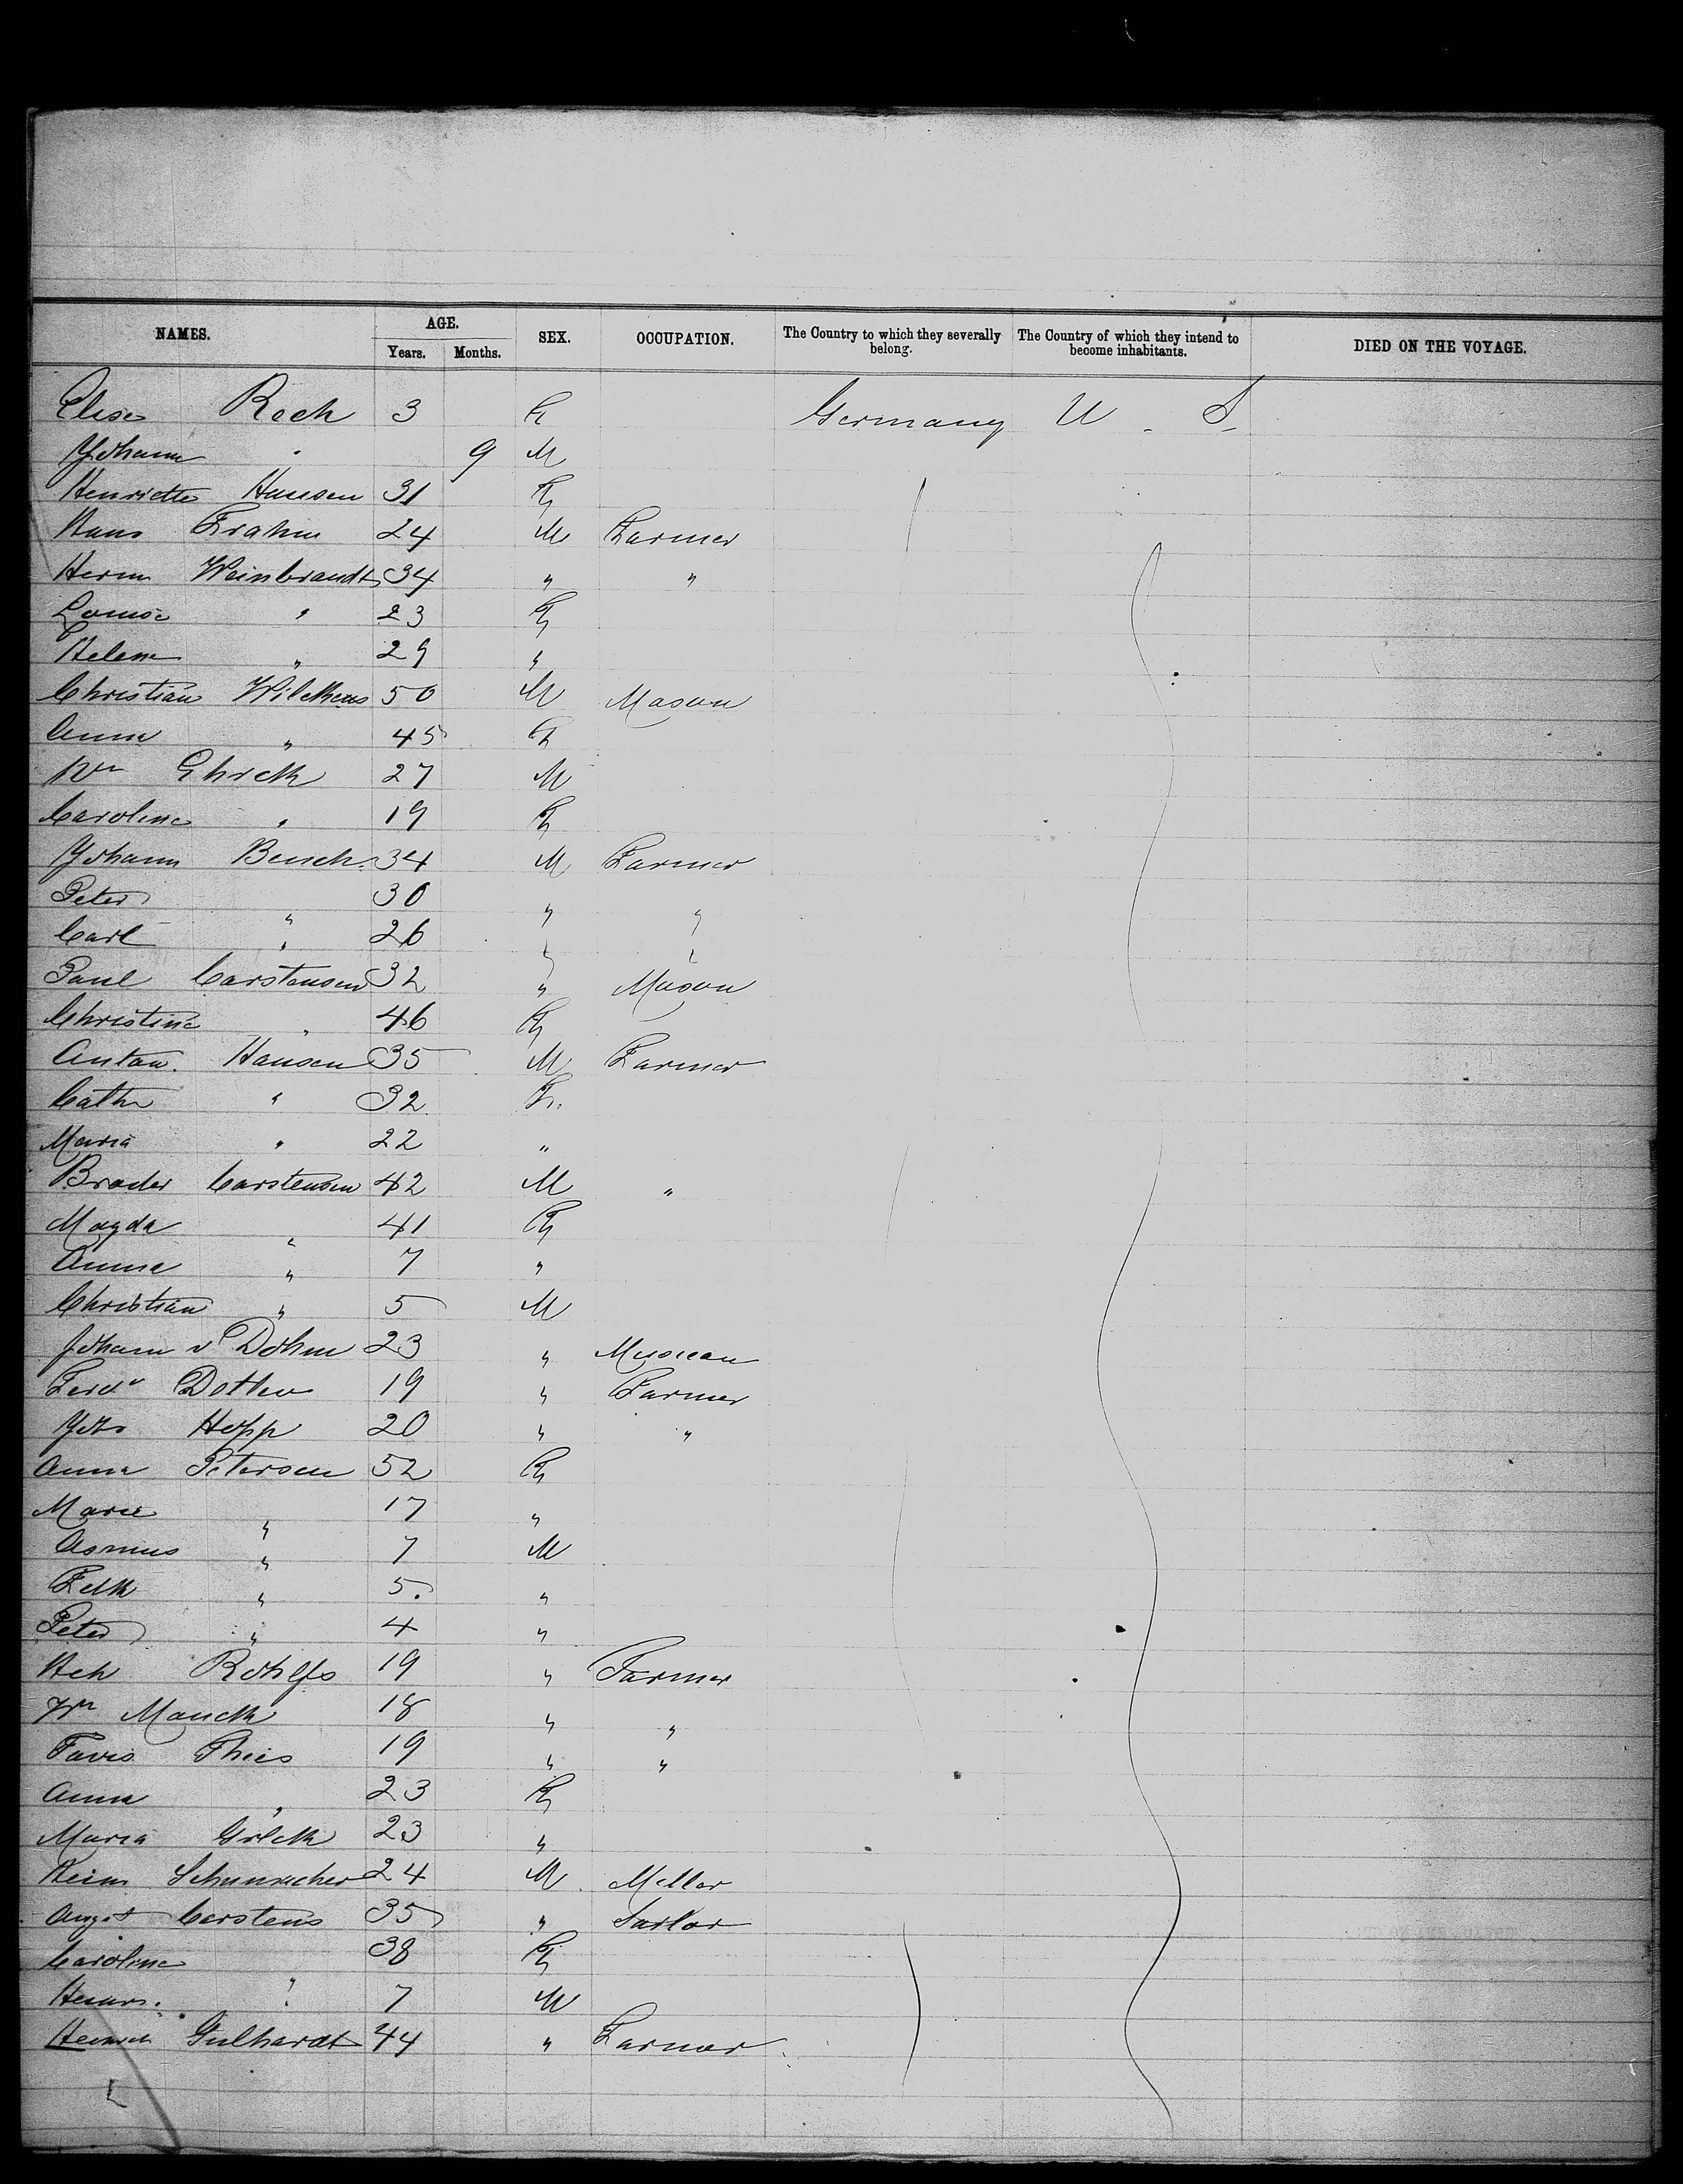 NAMES. AGE. SEX. OCCUPATION. The Country to which they severally belong. The Country of which they intend to become inhabitants. DIED ON THE VOYAGE.
Years. Months.
Elise Roch 3 F Germany U. S.
Johann " 9 M
Henriette Hansen 31 F
Hans Frahm 24 M Farmer
Herm Weinbrandt 34 " "
Louise " 23 F
Helene " 29 "
Christian Wilckens 50 M Mason
Anna " 45 F
Wm Ehrck 27 M
Caroline " 19 F
Johann Bench 34 M Farmer
Peter " 30 " "
Carl " 26 " "
Paul Carstensen 32 " Mason
Christine " 46 F
Anton Hansen 35 M Farmer
Cathe " 32 F.
Maria " 22 "
Broder Carstensen 42 M "
Magda " 41 F
Anna " 7 "
Christian " 5 M
Johann v Dohm 23 " Musican
Ferdn Dotlev 19 " Farmer
Johs Hopp 20 " "
Anna Petersen 52 F
Marie " 17 "
Asmus " 7 M
Peter " 4 "
Hch Rohlfs 19 " Farmer
Wm Manck 18 " "
Thies 19 " "
Anna " 23 F
Maria 23 "
Hein Schumacher 24 M Miller
August Carstens 35 " Sailor
Caroline 38 F
" 7 M
Heinrich Gulhardt 44 " Farmer